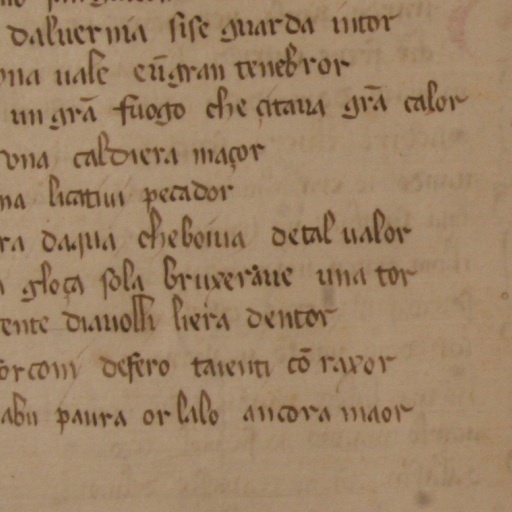 daluernia sise guarda intor
ona uale eũ gran tenebror
un grã fuogo che çitaua grã calor
una caldiera maçor
na li catiui pecador
ra daqua che boiua de tal ualor
gloça sola bruxeraue una tor
ente diauolli liera dentor
forconi defero taienti cõ raxor
abu paura or lalo ancora maor